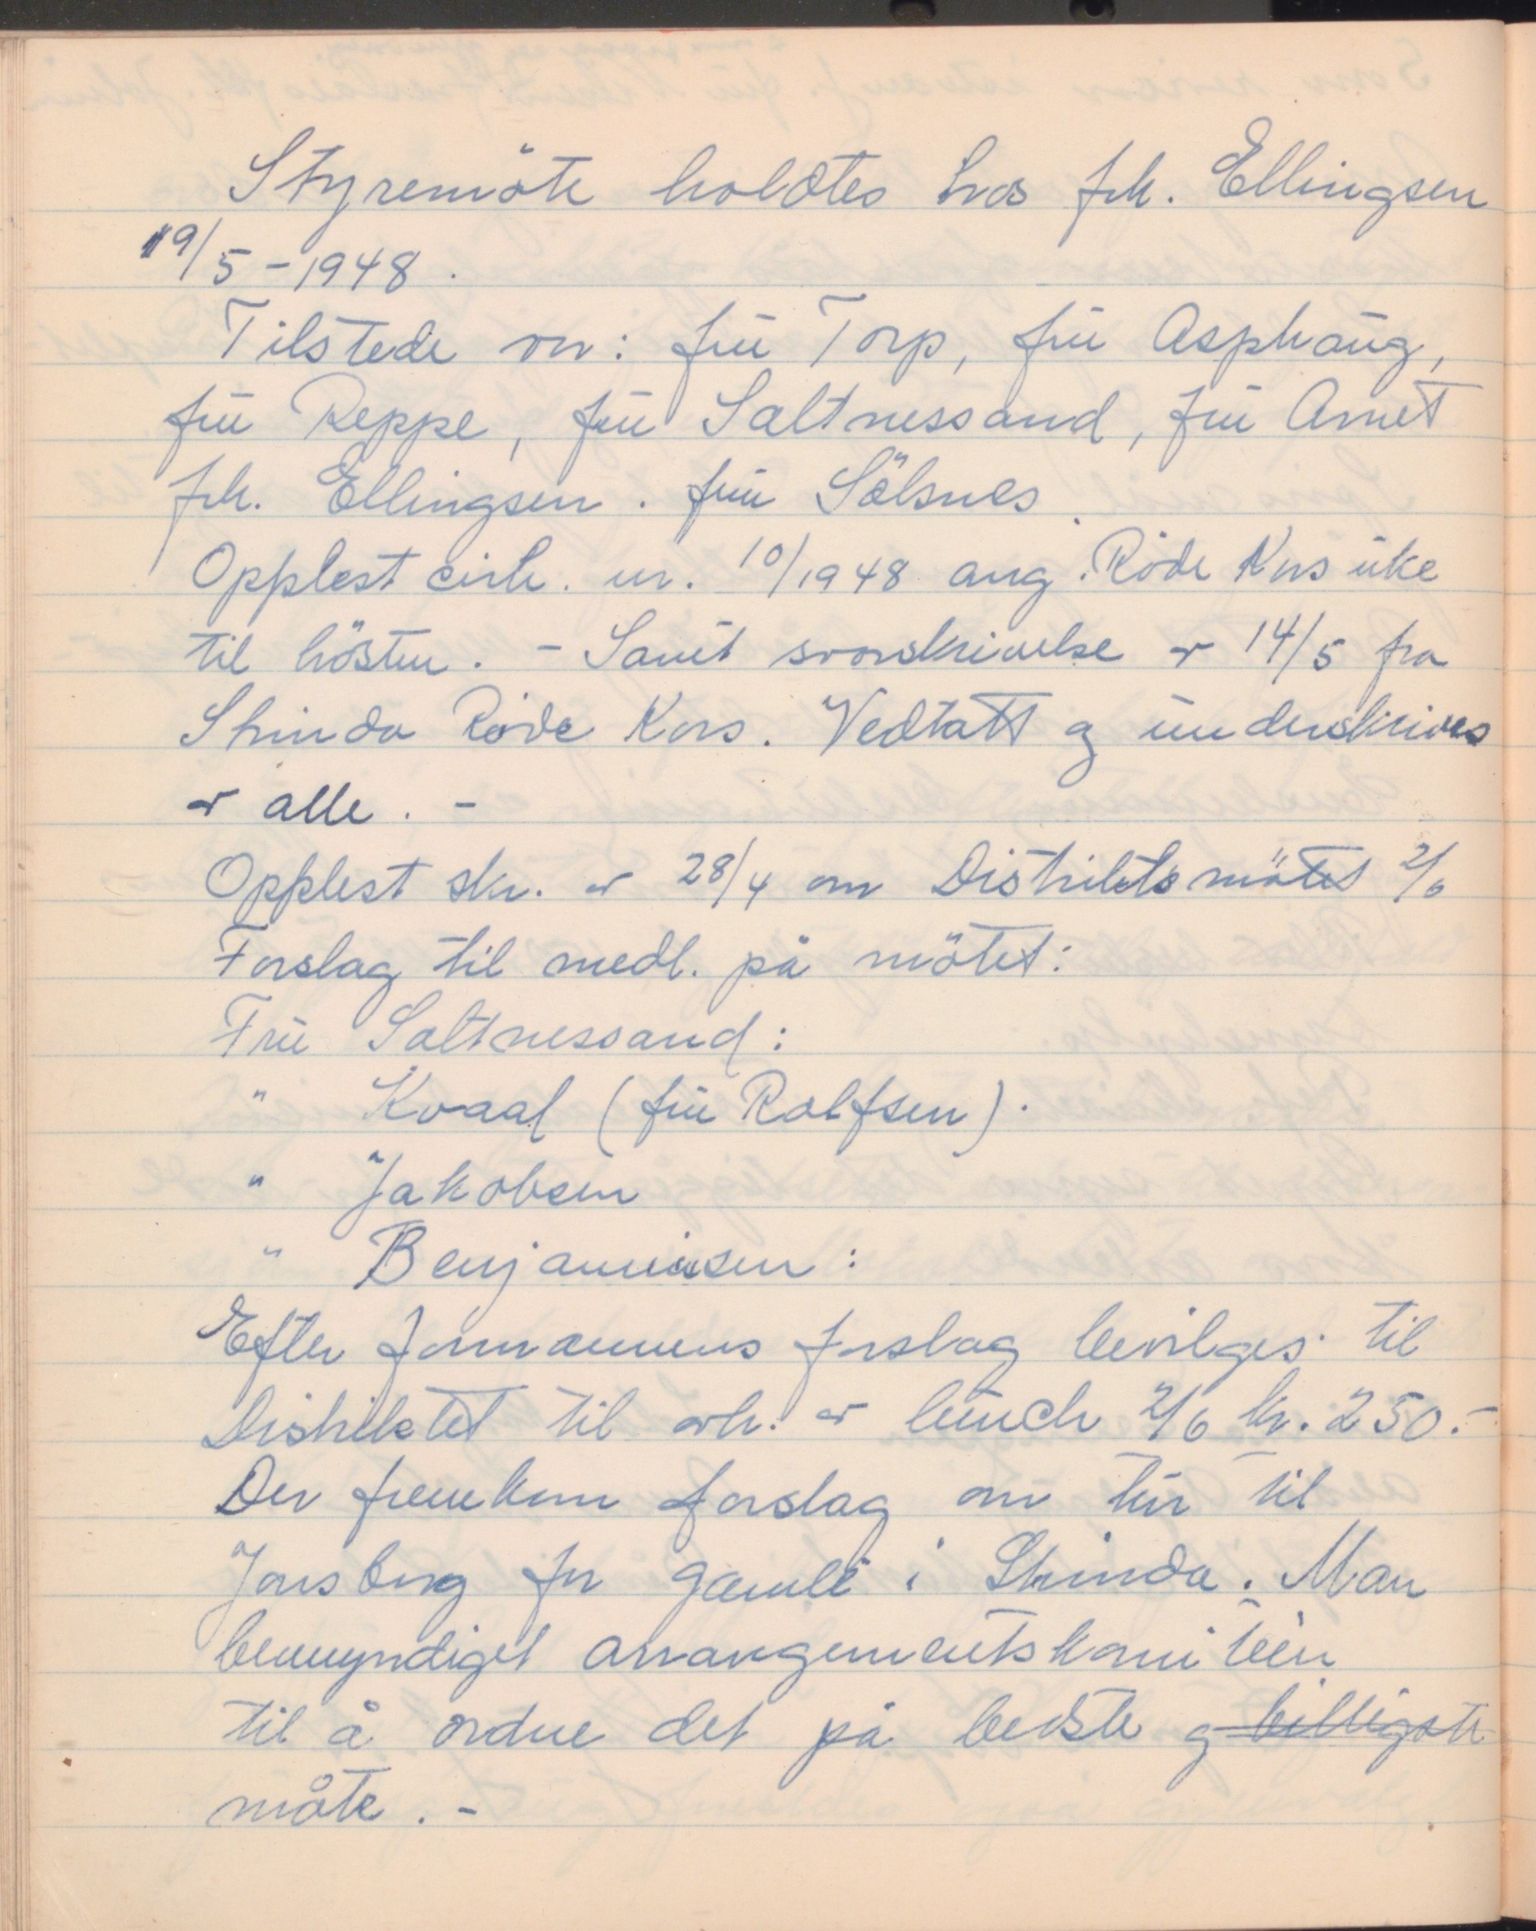 Styremöte holdtes hos frk. Ellingsen
19/5-1948.
Tilstede var: frü Torp, frü Asphaug,
frü Reppe, frü Saltnessand, frü Arnet
frk. Ellingsen. frü Sölsnes.
Opplest cirk. nr. 10/1948 ang. Röde Kors üke
til hösten. - Samt svarskrivelse av 14/5 fra
Strinda Röde Kors. Vedtatt og ünderskrives
av alle. -
Opplest skr. av 28/4 om Distriktsmötet 2/6
Forslag til medl. på mötet:
Frü Saltnessand:
" Kvaal (frü Rolfsen).
" Jakobsen
" Benjaminsen:
Efter formannens forslag bevilges til
Distriktet til avh. av lünch 2/6 kr. 250.-
Der fremkom forslag om tür til
Jonsborg for gamle i Strinda. Man
bemyndiget arrangementskomitéen
til å ordne det på bedste og billigste
måte. -